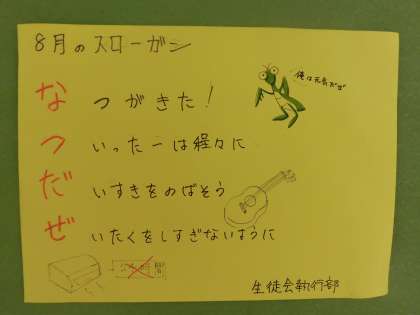 8月のスローガン
俺は元気だぜ
なつがきた!
ついったーは程々に
だいすきをのばそう
ぜいたくをしすぎないように
生徒会執行部